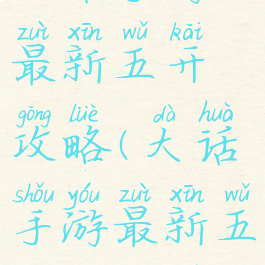 zuì xīn wǔ kāi
最新五开
gōng lüè dà huà
攻略(大话
shǒu yóu zuì xīn wǔ
手游最新五